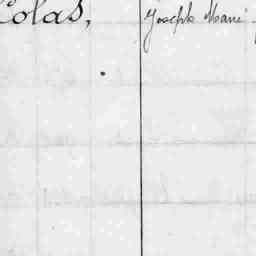 Colas, Joseph Marie